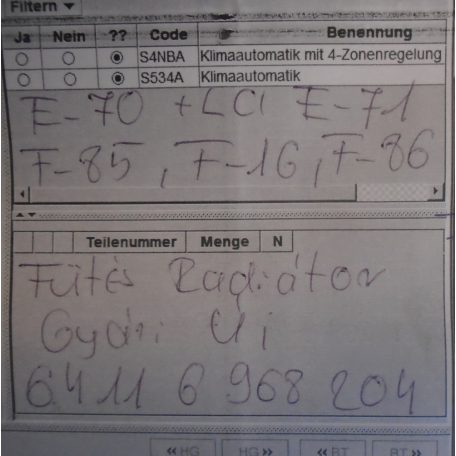 Filtern
Ja Nein ?? Code Benennung
S4NBA Klimaautomatik mit 4-Zonenregelung
S534A Klimaautomatik
E-70 +LCI E-71
F-85, F-16, F-86
Teilenummer Menge N
Fütés Radiátor
Gyári Új
6411 6 968 204
<< HG HG >> << BT BT >>